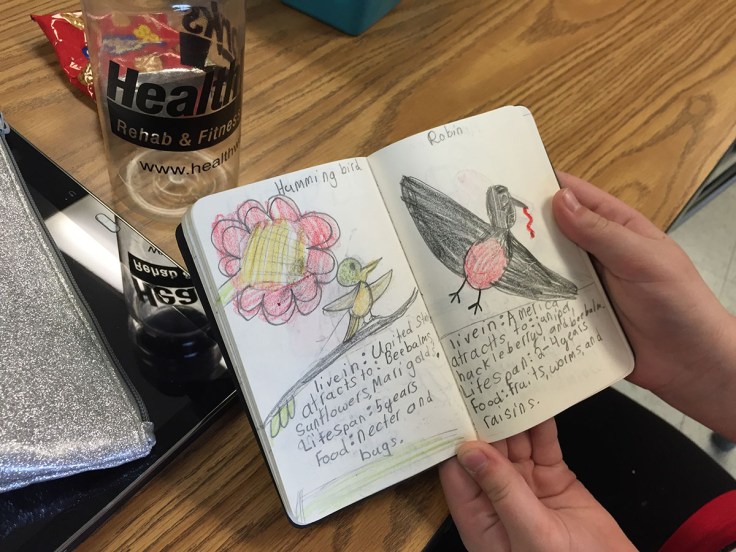 Health
Rehab & Fitness
www.healthw
Humming bird
livein: United Sta
atracts to: Beebalm,
Sunflowers, Marigold.
Lifespan: 5 years
Food: necter and
bugs.
Robin
livein: America
atracts to:
hackleberry, and beebalm.
Lifespan: 2-4 years
Food: fruits, worms, and
raisins.